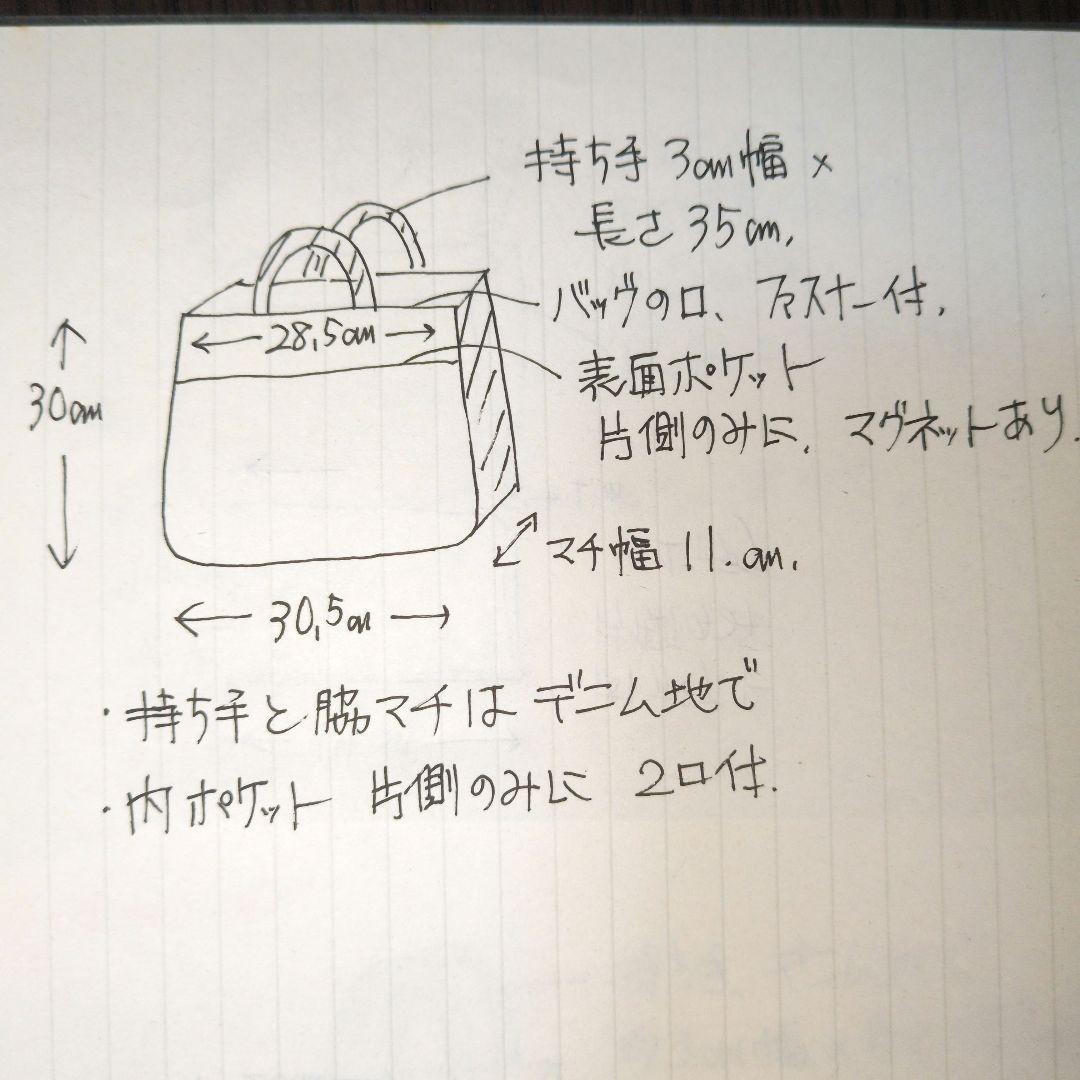 持ち手 3cm幅 ×
長さ 35cm.
バッグの口、ファスナー付.
28.5cm
表面ポケット
片側のみに、マグネットあり.
30cm
マチ幅 11.cm.
30.5cm
・持ち手と脇マチはデニム地で
・内ポケット 片側のみに 2口付.